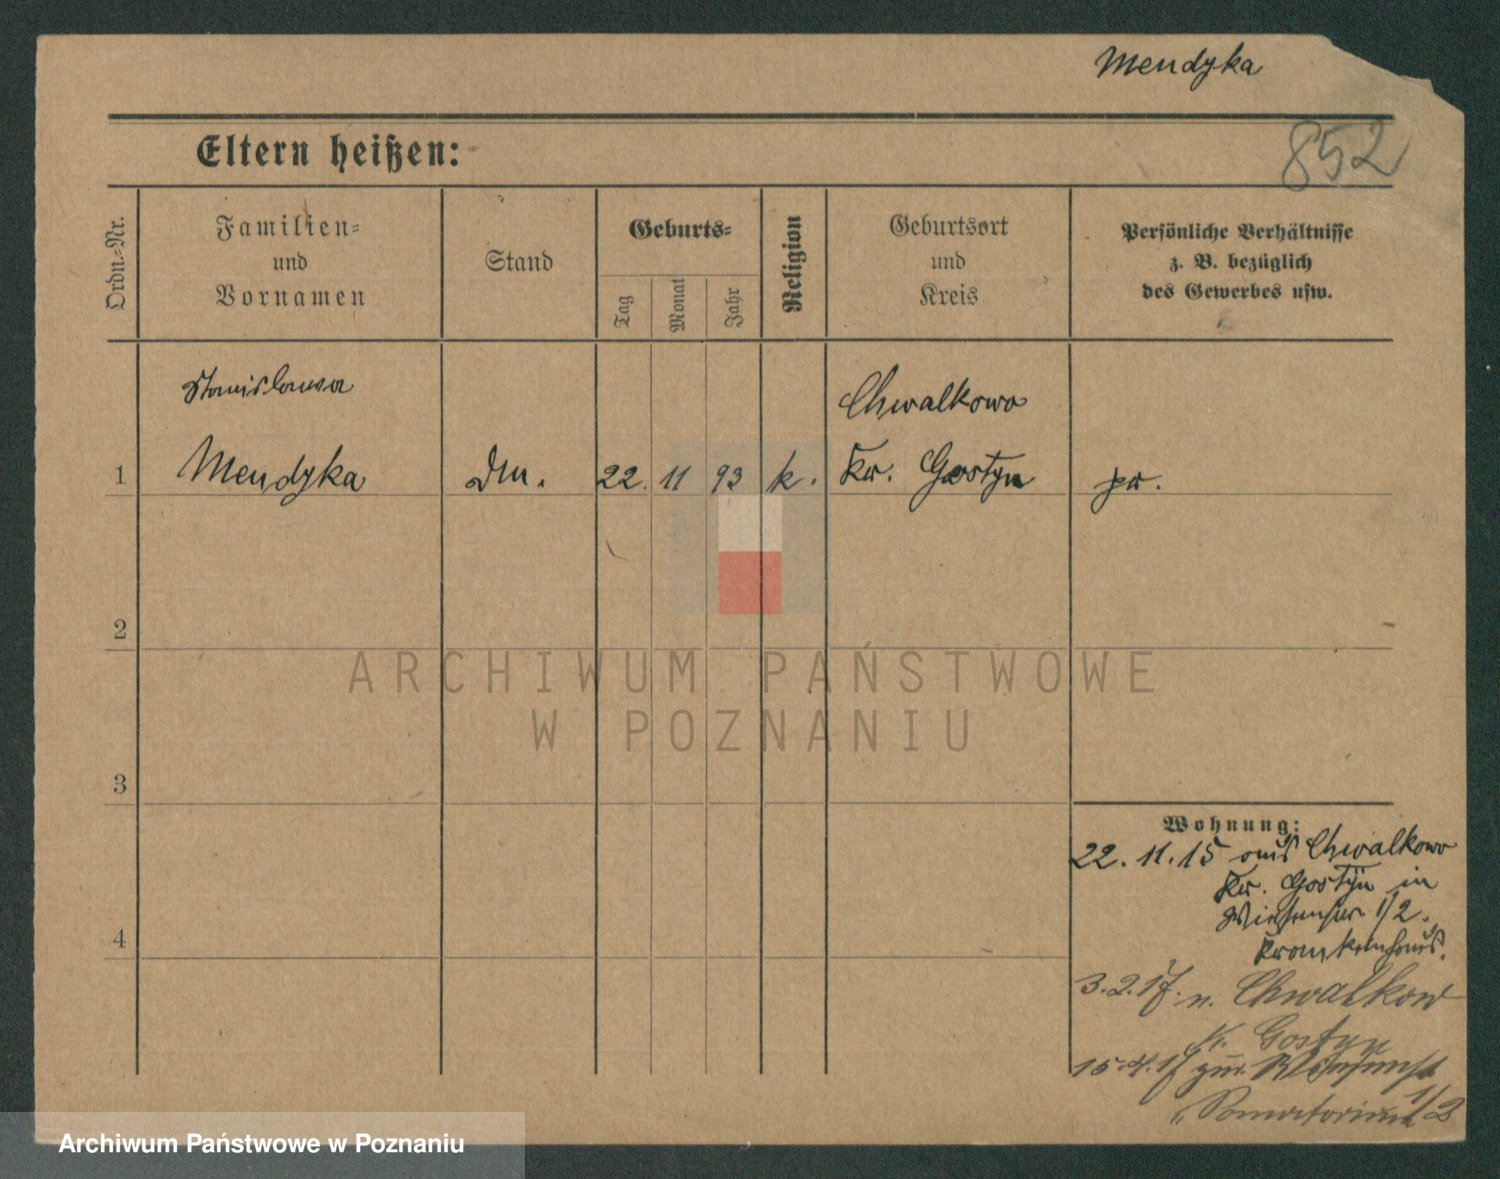 Mendyka
852
Eltern heißen:
Ordn.-Nr.
Familien-
und
Vornamen
Stand
Geburts-
Tag
Monat
Jahr
Religion
Geburtsort
und
Kreis
Persönliche Verhältnisse
z. B. bezüglich
des Gewerbes usw.
Stanislawa
Chwalkowo
1 Mendyka 22. 11 93 k. Kr. Gostyn pr.
2
3
4
Wohnung:
22.11.15 aus Chwalkowo
Kr. Gostyn in
Wiesenstr. 1/2.
Krankenhaus.
3.2.17. n. Chwalkow
Kr. Gostyn
15.4.17 zur. Wiesenst
Sanatorium 1/2
ARCHIWUM PAŃSTWOWE
W POZNANIU
Archiwum Państwowe w Poznaniu